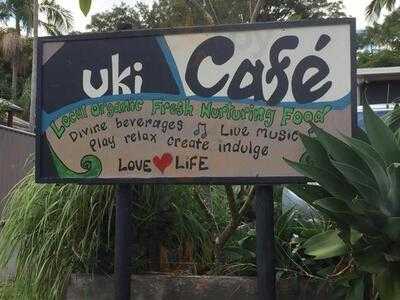 uki Café
Local organic Fresh Nurturing Food
Divine beverages ♫ Live music
Play relax create indulge
LOVE ♥ LiFE